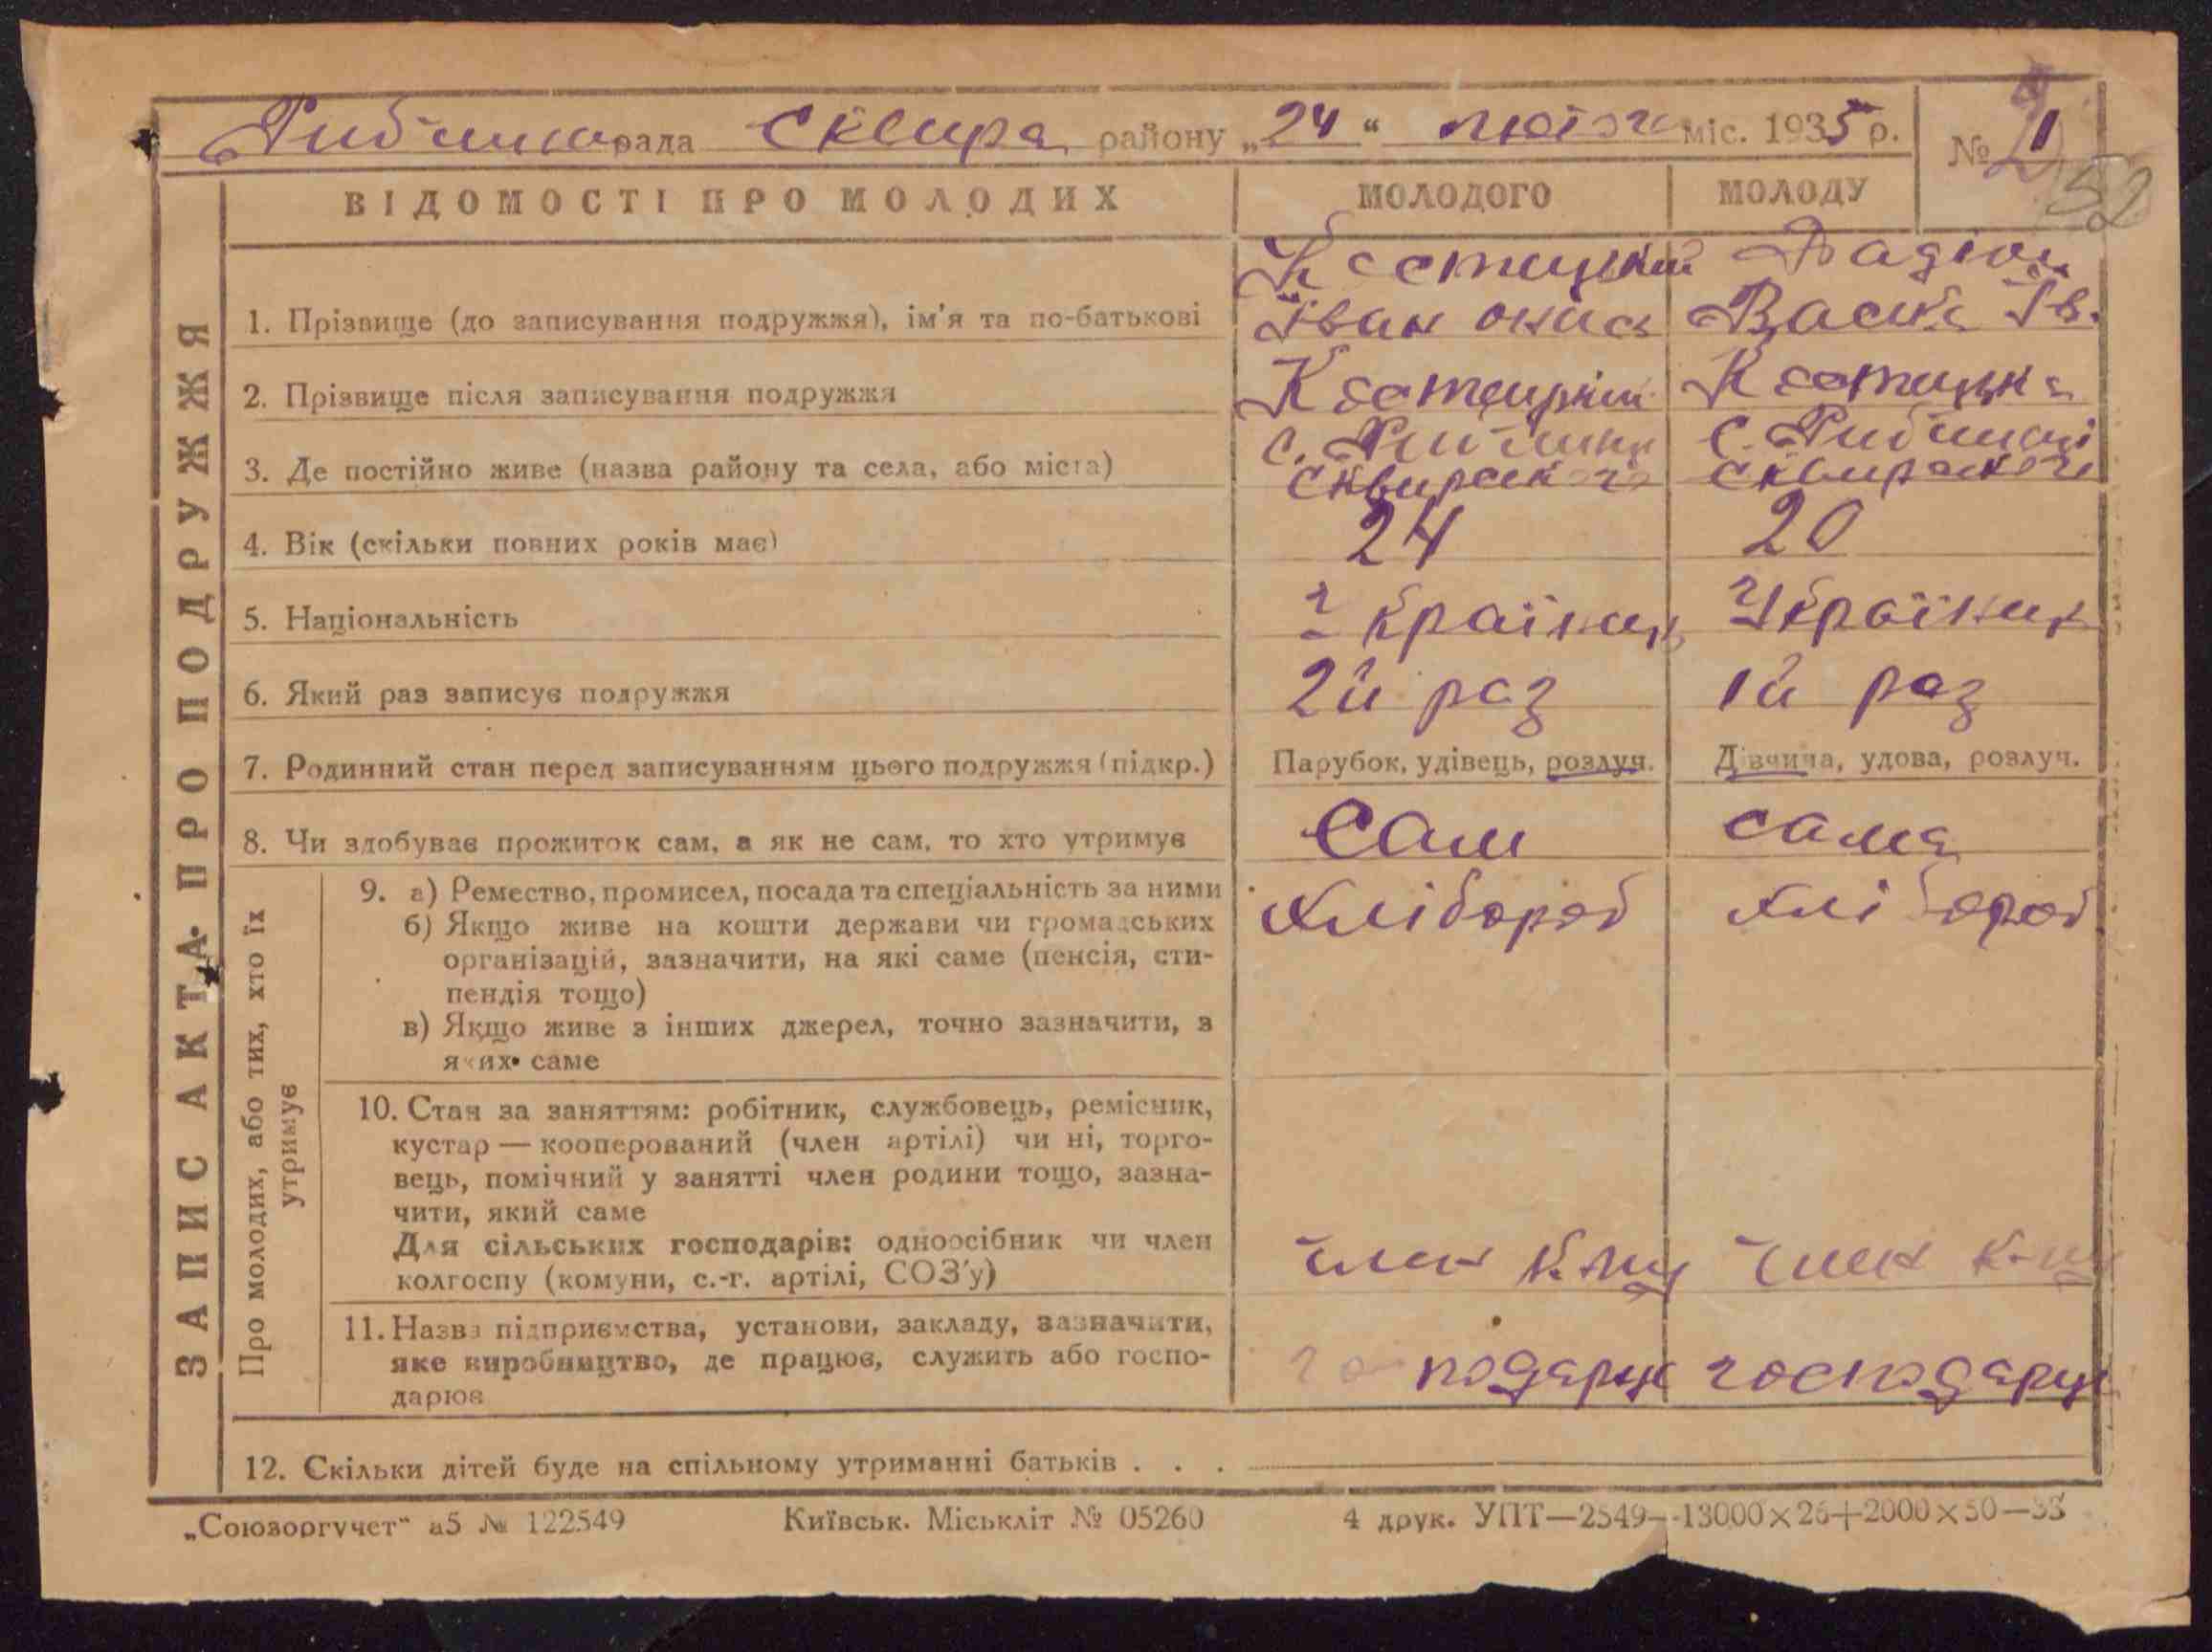 рада Сквира району „24“ лютого міс. 1935 р. №
52
ВІДОМОСТІ ПРО МОЛОДИХ МОЛОДОГО МОЛОДУ
ЗАПИС АКТА ПРО ПОДРУЖЖЯ
1. Прізвище (до записування подружжя), ім'я та по-батькові Іван Ів.
2. Прізвище після записування подружжя
3. Де постійно живе (назва району та села, або міста) с. Сквирского с. Сквирского
4. Вік (скільки повних років має) 24 20
5. Національність Українец Українец
6. Який раз записує подружжя 2й раз 1й раз
7. Родинний стан перед записуванням цього подружжя (підкр.) Парубок, удівець, розлуч. Дівчина, удова, розлуч.
8. Чи здобуває прожиток сам, а як не сам, то хто утримує Сам сама
Про молодих, або тих, хто їх утримує
9. а) Ремество, промисел, посада та спеціальність за ними Хлібороб Хлібороб
б) Якщо живе на кошти держави чи громадських
організацій, зазначити, на які саме (пенсія, сти-
пендія тощо)
в) Якщо живе з інших джерел, точно зазначити, з
яких саме
10. Стан за заняттям: робітник, службовець, ремісник,
кустар — кооперований (член артілі) чи ні, торго-
вець, помічний у занятті член родини тощо, зазна-
чити, який саме
Для сільських господарів: одноосібник чи член член член
колгоспу (комуни, с.-г. артілі, СОЗ'у)
11. Назва підприємства, установи, закладу, зазначити,
яке виробництво, де працює, служить або госпо-
дарює
12. Скільки дітей буде на спільному утриманні батьків . . .
„Союзоргучет“ а5 № 122549 Київськ. Міськліт № 05260 4 друк. УПТ—2549—13000×26+2000×50—33